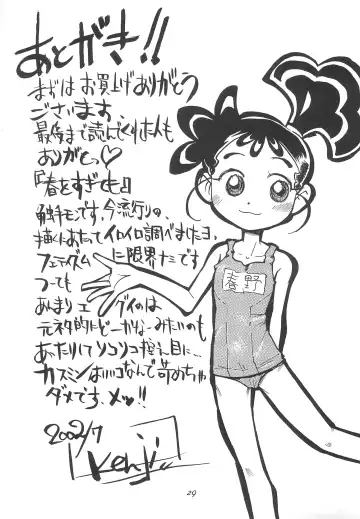 あとがき!!
まずはお買上げありがとう
ございます。
最后まで読んでくれた人も
ありがとっ♡
『春をすぎても』
です。今流行りの、
描くにあたってイロイロ調べましたヨ。
フェチズム に限界だです
つっても
あんまりエグイのは
元ネタ的にどーかなーみたいのも
あったりしてソコソコ控え目に…
カスミンはいいコなんで苛めちゃ
ダメです。メッ!!
2002/7
Kenji
春野
29